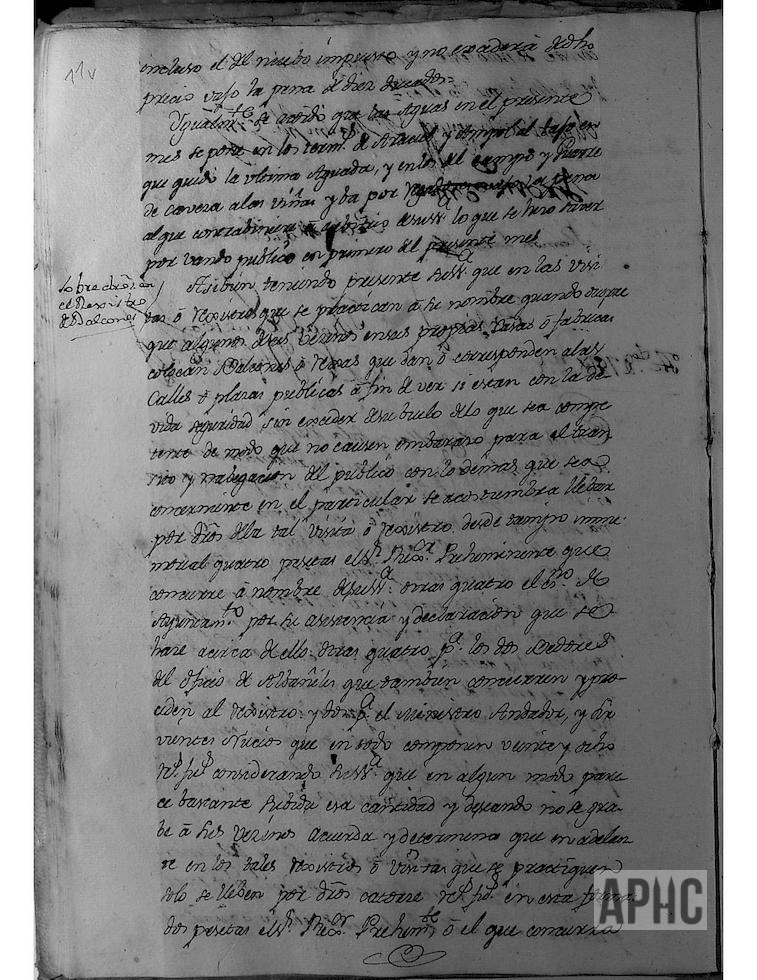 11v
incluso el del nuebo impuesto y no excederà de dho
precio vajo la pena de diez ducados =
Ygualmte. se acordó que las Aguas en el presente
mes se pone en los term.s de y el
que quedò la ultima Aguada, y en los del campo y Puente
de caveza a las viñas y ba por la pena
al que contrabiniere à de su S.a lo que se hizo saver
por vando publico en primero del presente mes
sobre dros. en
el Rexistro
de Balcones
Asibien teniendo presente su S.a que en las visi
tas ò Rexistros que se practican à su nombre quando ocurre
que algunos de sus vezinos en sus propias casas ò fabrica
colocan Balcones ò Rexas que dan ò corresponden a las
Calles ò plazas publicas à fin de ver si estan con la de
vida seguridad sin exceder de su buelo de lo que sea compe
tente de modo que no causen embarazo para el tran
sito y nabegacion del publico con lo demas que sea
concerniente en el particular se acostumbra llebar
por dros. de la tal visita ò rexistro desde tiempo inme
morial quatro pesetas el S.r Rex.or Preheminente que
concurre à nombre de su S.a otras quatro el esno. de
Ayuntam.to por su asistencia y declaracion que se
haze acerca de ello: otras quatro p.s los dos Veedores
del oficio de Albañiles que tambien concurren y pro
ceden al rexistro: y dos p.s el Ministro Andador, y sir
vientes Nuncios que en todo componen veinte y ocho
Rs. fs. considerando su S.a que en algun modo pare
ce bastante subida esa cantidad y deseando no se gra
be à sus vezinos acuerda y determina que en adelan
te en los tales rexistros ò visitas que se practiquen
solo se lleben por dros. catorze rs. fs. en esta forma
dos pesetas el S.r Rex.or Prehem.te ò el que concurra
APHC